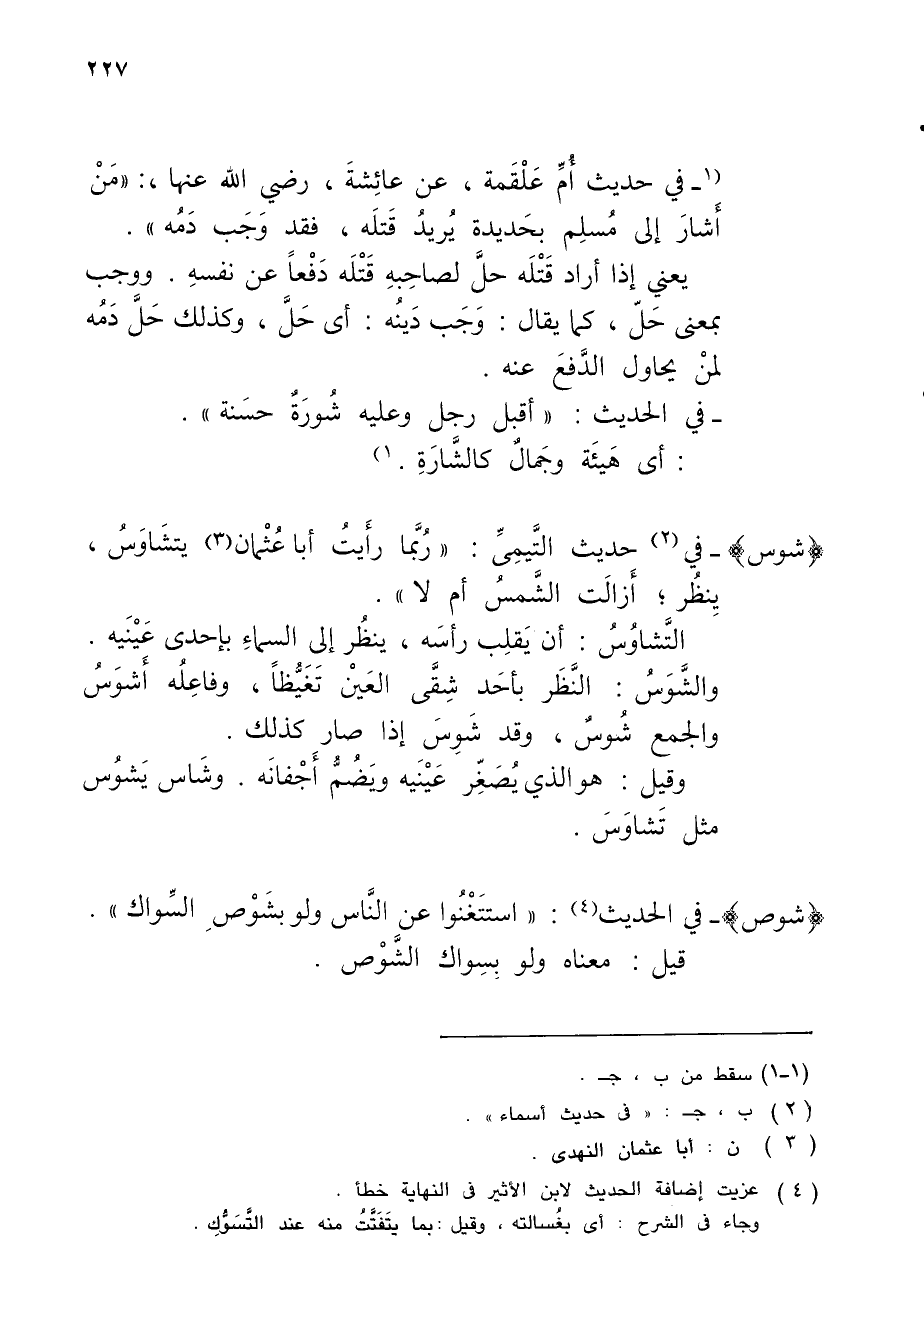 ٢٢٧
(١ـ في حديث أُمِّ عَلْقَمة ، عن عائِشةَ ، رضي الله عنها ،: «مَنْ
أَشارَ إلى مُسلِم بحَديدة يُريدُ قَتلَه ، فقد وَجَب دَمُه » .
يعني إذا أراد قَتْلَه حلَّ لصاحِبهِ قَتْلَه دَفْعاً عن نفسهِ . ووجب
بمعنى حَلّ ، كما يقال : وَجَب دَينُه : أى حَلَّ ، وكذلك حَلَّ دَمُه
لمنْ يحاول الدَّفعَ عنه .
ـ في الحديث : « أقبل رجل وعليه شُورَةٌ حسَنة » .
: أى هَيئَة وجَمالٌ كالشَّارَةِ . ١)
﴿شوس﴾ ـ في(٢) حديث التَّيمِىِّ : « رُبَّما رأَيتُ أبا عُثْمان(٣) يتشَاوَسُ ،
يِنظُر ؛ أَزالَت الشَّمسُ أم لا » .
التَّشاوُسُ : أن يَقلِب رأسَه ، ينظُر إلى السماءِ بإحدى عَيْنَيه .
والشَّوَسُ : النَّظَر بأحَد شِقَّى العَيْن تَغَيُّظاً ، وفاعِلُه أَشوَسُ
والجمع شُوسٌ ، وقد شَوِسَ إذا صار كذلك .
وقيل : هو الذي يُصَغِّر عَيْنَيه ويَضُمُّ أَجْفانَه . وشَاس يَشوُس
مثل تَشاوَسَ .
﴿شوص﴾ـ في الحديث(٤) : « استَغْنُوا عن النَّاس ولو بشَوْصِ السِّواك » .
قيل : معناه ولو بِسِواك الشَّوْص .
(١-١) سقط من ب ، جـ .
(٢) ب ، جـ : « فى حديث أسماء » .
(٣) ن : أبا عثمان النهدى .
(٤) عزيت إضافة الحديث لابن الأثير فى النهاية خطأ .
وجاء فى الشرح : أى بغُسالته ، وقيل : بما يتَفَتَّتُ منه عند التَّسَوُّكِ .